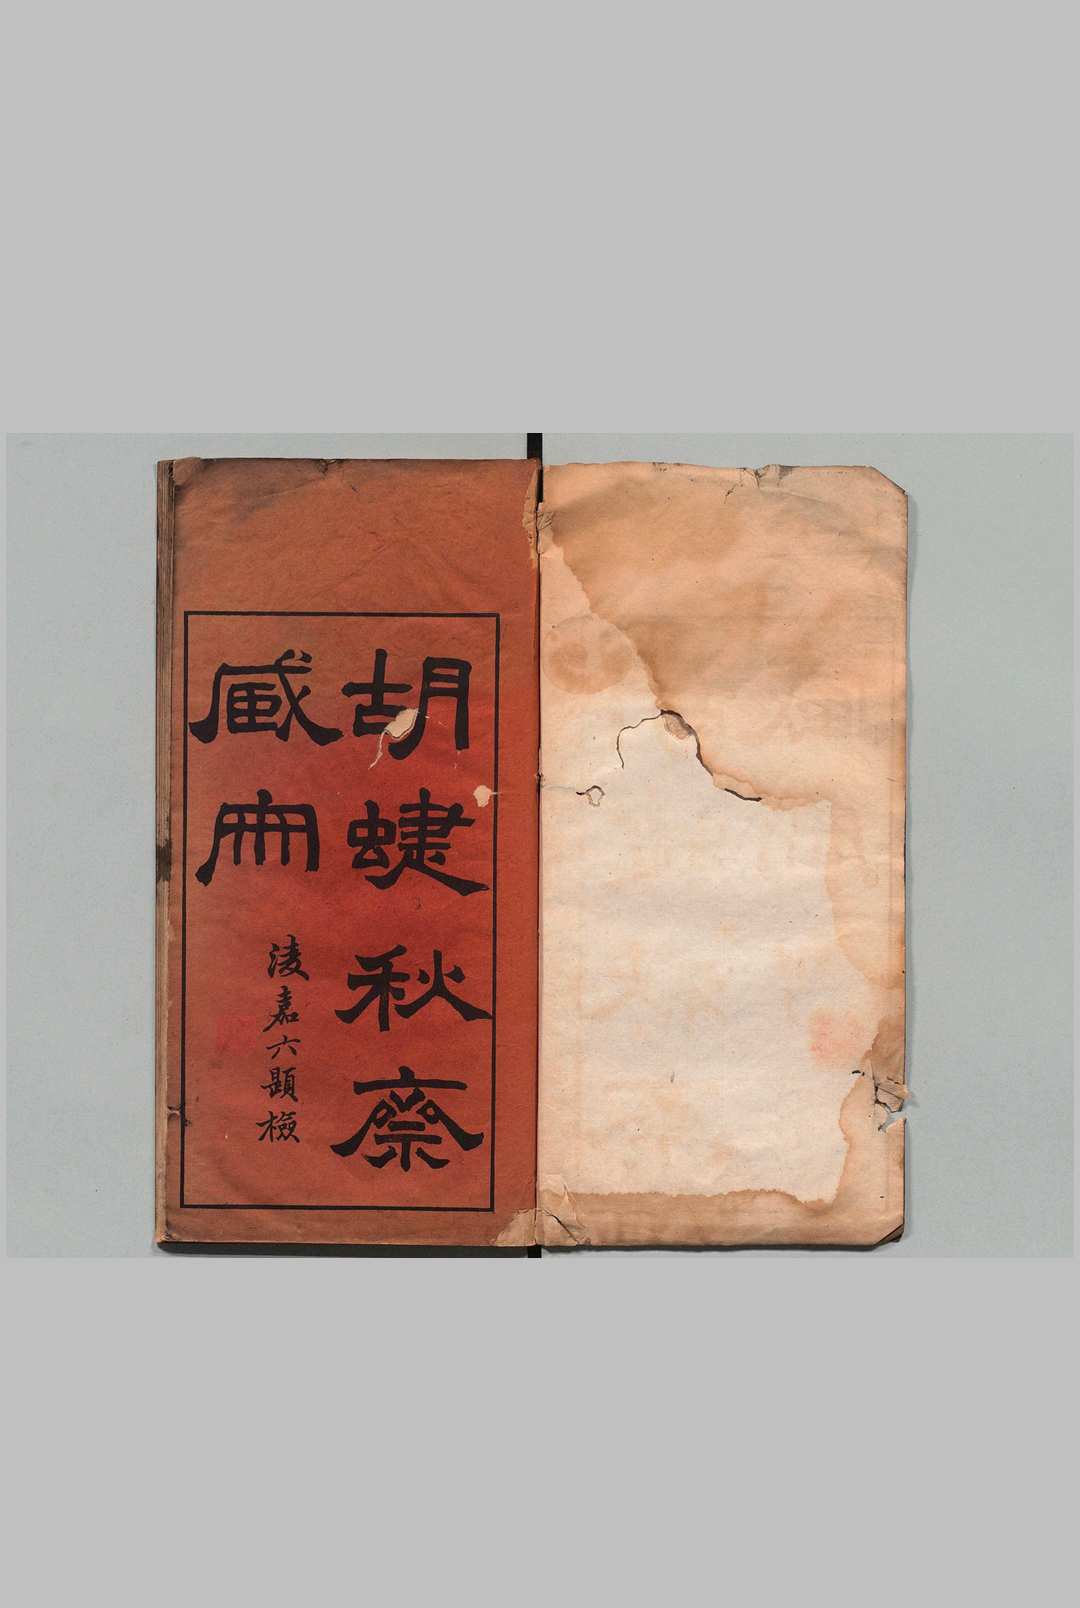 胡蜨秋齋
臧冊
淩嘉六題檢